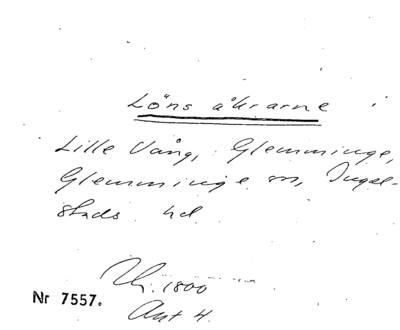 Löns åkrarne
Lille Vång, Glemminge,
Glemminge sn, Ingel-
stads hd
1800
Nr 7557.
Akt 4.